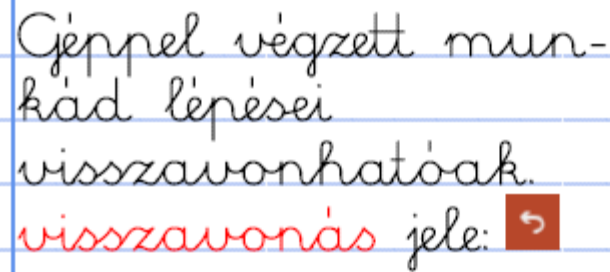 Géppel végzett mun-
kád lépései
visszavonhatóak.
visszavonás jele: